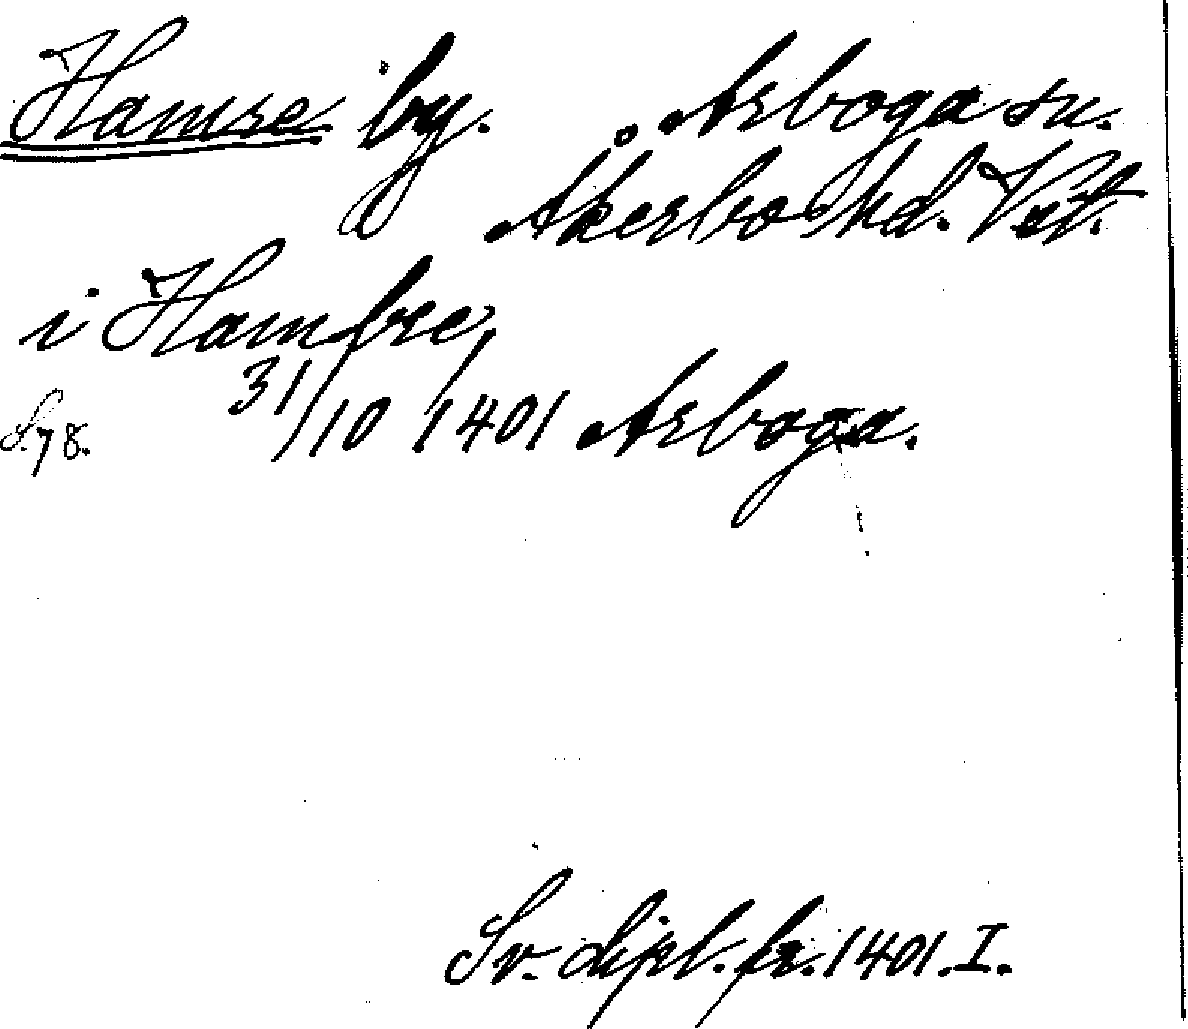 Hamre by. Arboga sn.
Åkerbo hd. Vstm.
i Hambre,
31/10 1401 Arboga.
S. 78.
Sv. dipl. fr. 1401. I.